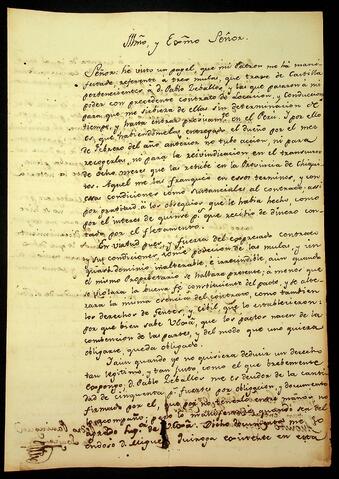 Illmo, y Exmo Señor.
Señor: he visto un papel, que mi Patron me há mani
festado, referente á tres mulas, que traxe de Castilla
pertenecientes á D. Pablo Zeballos, y las que pasaron á mi
poder con precedente contrato de Locacion, y Conduccion
para que me sirviera de ellas sin determinacion de
tiempo, y hasta entrar precisamte en el Perú. S por ello
es, que habiendomelas entregado el dueño por el mes
de Febrero del año anterior no tubo accion, ni para
recogerlas, ni para la reivindicacion en el transcurso
de ocho meses que las retube en la Provincia de Chiqui
tos. Aquel me las franqueó en esos terminos, y con
esas condiciones como sustanciales al contrato, asi
por gratitud á los obsequios que le habia hecho, como
por el interes de quince p. que recibió de dinero con
tado por el fletamento.
En virtud pues, y fuerza del expresado contrato
y sus condiciones tomé posecion de las mulas, y in
dominio inalterable, é inatendible, aun quando
el mismo Propietario se hallara presente; á menos que
se violara la buena fé constituiente del pacto, y se alte
rara la misma esencia del contrato, como tambien
los derechos de Gentes, y Cibil, que lo establecieron:
por que bien sabe Vxa, que los pactos nacen de la
conbencion de las partes, y del modo que uno quiera
obligarse, queda obligado.
Y aun quando yo no quisiera deducir un derecho
tan legitimo, y tan justo, como el que brebemente
expongo: D. Pablo Zeballos me es deudor de la canti
dad de cinquenta p. fuertes por obligacion, y documento
firmado por el, que por no tenerlo entre manos no
lo acompaño; pero lo manifestaré quando sea del
agrado de Vxa. Dicho documento me lo
endosó D. Miguel Quiroga existente en esta